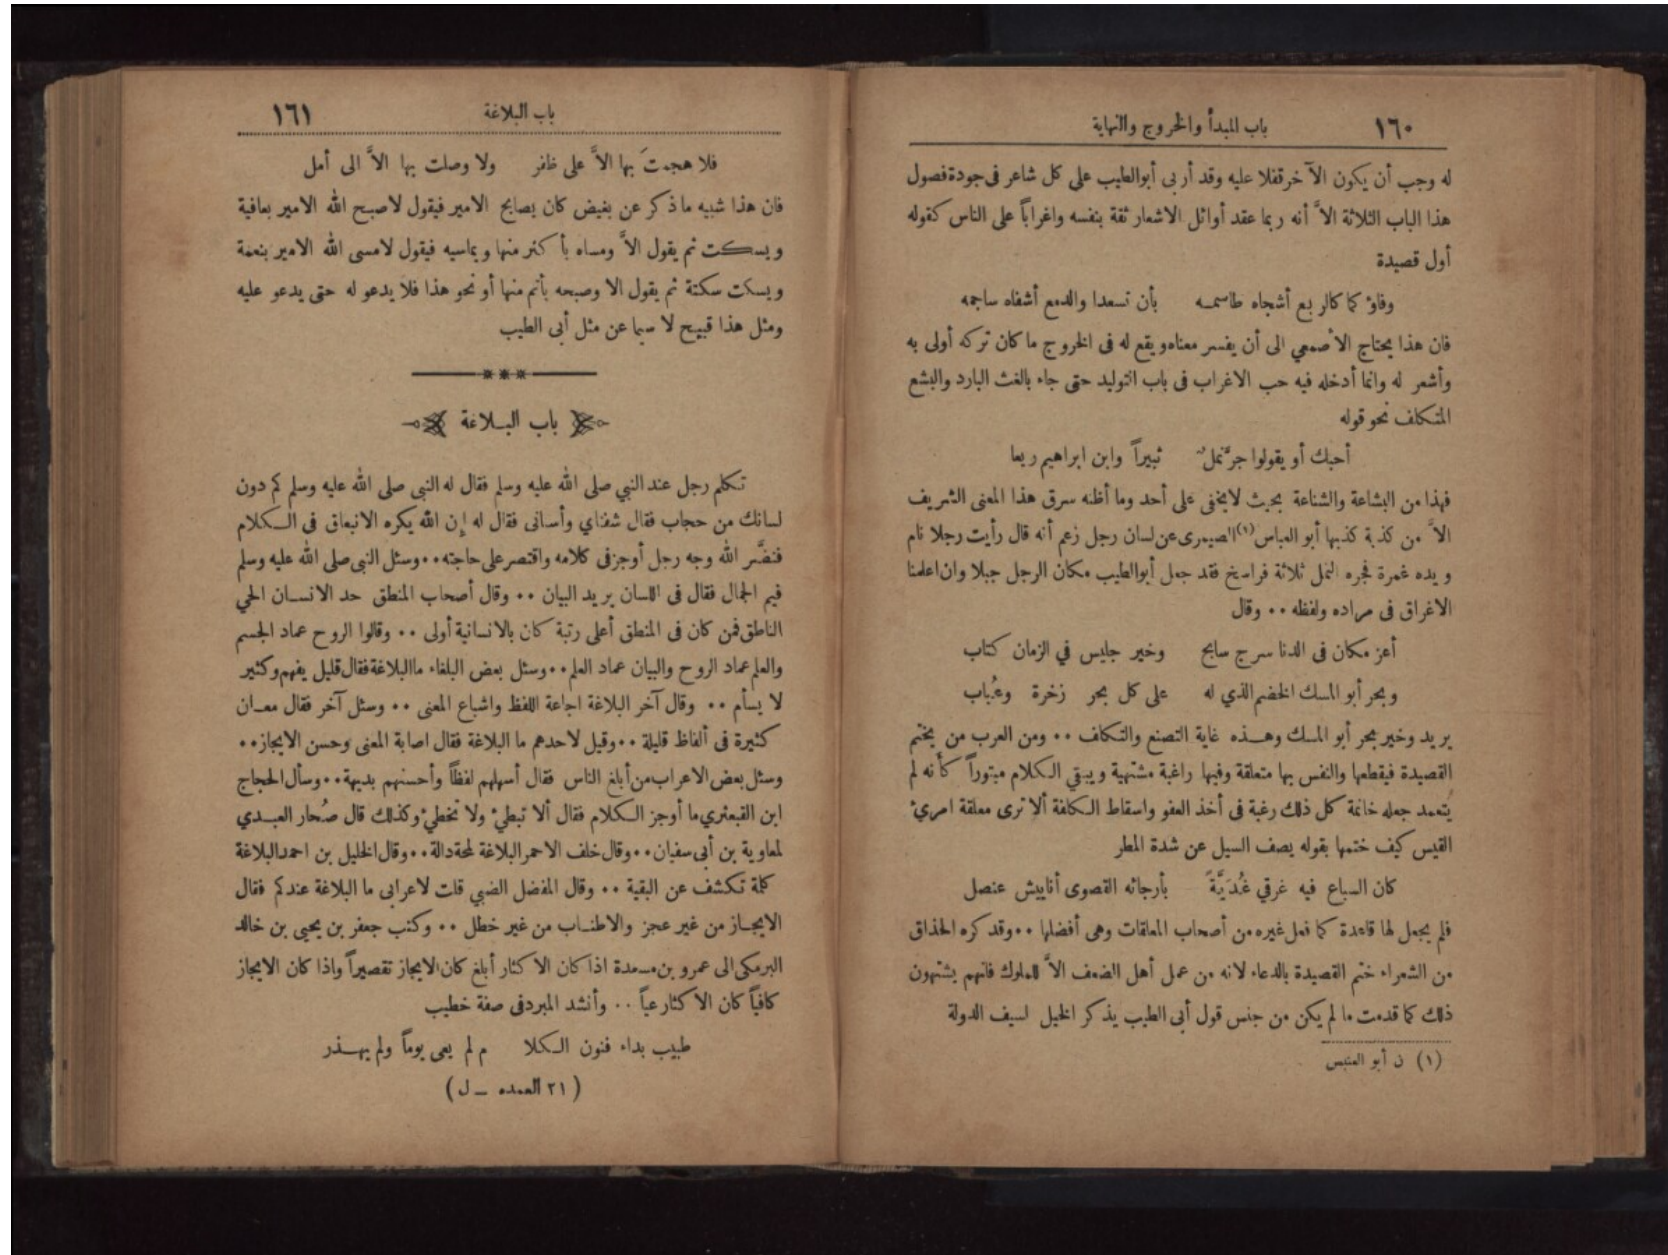 ١٦٠ باب المبدأ والخروج والنهاية
له وجب أن يكون الآخر قفلا عليه وقد أربى أبوالطيب على كل شاعر فى جودة فصول
هذا الباب الثلاثة الاَّ أنه ربما عقد أوائل الاشعار ثقة بنفسه واغراباً على الناس كقوله
أول قصيدة
وفاؤ كما كالربع أشجاه طاسمـه بأن تسعدا والدمع أشفاه ساجمه
فان هذا يحتاج الأصمعي الى أن يفسر معناه ويقع له فى الخروج ما كان تركه أولى به
وأشعر له وانما أدخله فيه حب الاغراب فى باب التوليد حتى جاء بالغث البارد والبشع
المتكلف نحو قوله
أحبك أو يقولوا جرَّ نملٌ ثبيراً وابن ابراهيم ريعا
فهذا من البشاعة والشناعة بحيث لا يخفى على أحد وما أظنه سرق هذا المعنى الشريف
الاَّ من كذبة كذبها أبو العباس(١) الصيمرى عن لسان رجل زعم أنه قال رأيت رجلا نام
ويده غمرة فجره النمل ثلاثة فراسخ فقد جعل أبوالطيب مكان الرجل جبلا وان اعلمنا
الاغراق فى مراده ولفظه ٠٠ وقال
أعز مكان فى الدنا سرج سابح وخير جليس في الزمان كتاب
وبحر أبو المسك الخضم الذي له على كل بحر زخرة وعُباب
يريد وخير بحر أبو المسك وهـذه غاية التصنع والتكلف ٠٠ ومن العرب من يختم
القصيدة فيقطعها والنفس بها متعلقة وفيها راغبة مشتهية ويبقي الكلام مبتوراً كأنه لم
يُتعمد جعله خاتمة كل ذلك رغبة فى أخذ العفو واسقاط الكلفة ألا ترى معلقة امريء
القيس كيف ختمها بقوله يصف السيل عن شدة المطر
كان السباع فيه غرقي غُدَيَّةً بأرجائه القصوى أنابيش عنصل
فلم يجعل لها قاعدة كما فعل غيره من أصحاب المعلقات وهى أفضلها ٠٠ وقد كره الحذاق
من الشعراء ختم القصيدة بالدعاء لانه من عمل أهل الضعف الاَّ للملوك فانهم يشتهون
ذلك كما قدمت ما لم يكن من جنس قول أبى الطيب يذكر الخيل لسيف الدولة
(١) ن أبو العنبس
باب البلاغة ١٦١
فلا هجمتَ بها الاَّ على ظافر ولا وصلت بها الاَّ الى أمل
فان هذا شبيه ما ذكر عن بغيض كان يصابح الامير فيقول لا صبح الله الامير بعافية
ويسكت ثم يقول الاَّ ومساه بأكثر منها ويماسيه فيقول لامسى الله الامير بنعمة
ويسكت سكتة ثم يقول الا وصبحه بأتم منها أو نحو هذا فلا يدعو له حتى يدعو عليه
ومثل هذا قبيح لا سيما عن مثل أبى الطيب
باب البـلاغة
تكلم رجل عند النبي صلى الله عليه وسلم فقال له النبى صلى الله عليه وسلم كم دون
لسانك من حجاب فقال شفتاي وأسنانى فقال له إن الله يكره الانبعاق فى الـكلام
فنضَّر الله وجه رجل أوجز فى كلامه واقتصر على حاجته ٠٠ وسئل النبى صلى الله عليه وسلم
فيم الجمال فقال فى اللسان يريد البيان ٠٠ وقال أصحاب المنطق حد الانسـان الحي
الناطق فمن كان فى المنطق أعلى رتبة كان بالانسانية أولى ٠٠ وقالوا الروح عماد الجسم
والعلم عماد الروح والبيان عماد العلم ٠٠ وسئل بعض البلغاء ما البلاغة فقال قليل يفهم وكثير
لا يسأم ٠٠ وقال آخر البلاغة اجاعة اللفظ واشباع المعنى ٠٠ وسئل آخر فقال معـان
كثيرة فى ألفاظ قليلة ٠٠ وقيل لاحدهم ما البلاغة فقال اصابة المعنى وحسن الايجاز ٠٠
وسئل بعض الاعراب من أبلغ الناس فقال أسهلهم لفظاً وأحسنهم بديهة ٠٠ وسأل الحجاج
ابن القبعثري ما أوجز الـكلام فقال ألا تبطيء ولا تخطيء وكذلك قال صُحار العبـدي
لمعاوية بن أبى سفيان ٠٠ وقال خلف الاحمر البلاغة لمحة دالة ٠٠ وقال الخليل بن احمد البلاغة
كلمة تكشف عن البقية ٠٠ وقال المفضل الضبي قلت لاعرابى ما البلاغة عندكم فقال
الايجـاز من غير عجز والاطنـاب من غير خطل ٠٠ وكتب جعفر بن يحيى بن خالد
البرمكى الى عمرو بن مسعدة اذا كان الاكثار أبلغ كان الايجاز تقصيراً واذا كان الايجاز
كافياً كان الاكثار عياً ٠٠ وأنشد المبرد فى صفة خطيب
طبيب بداء فنون الـكلا م لم يعى يوماً ولم يهـذر
(٢١ العمده ــ ل)